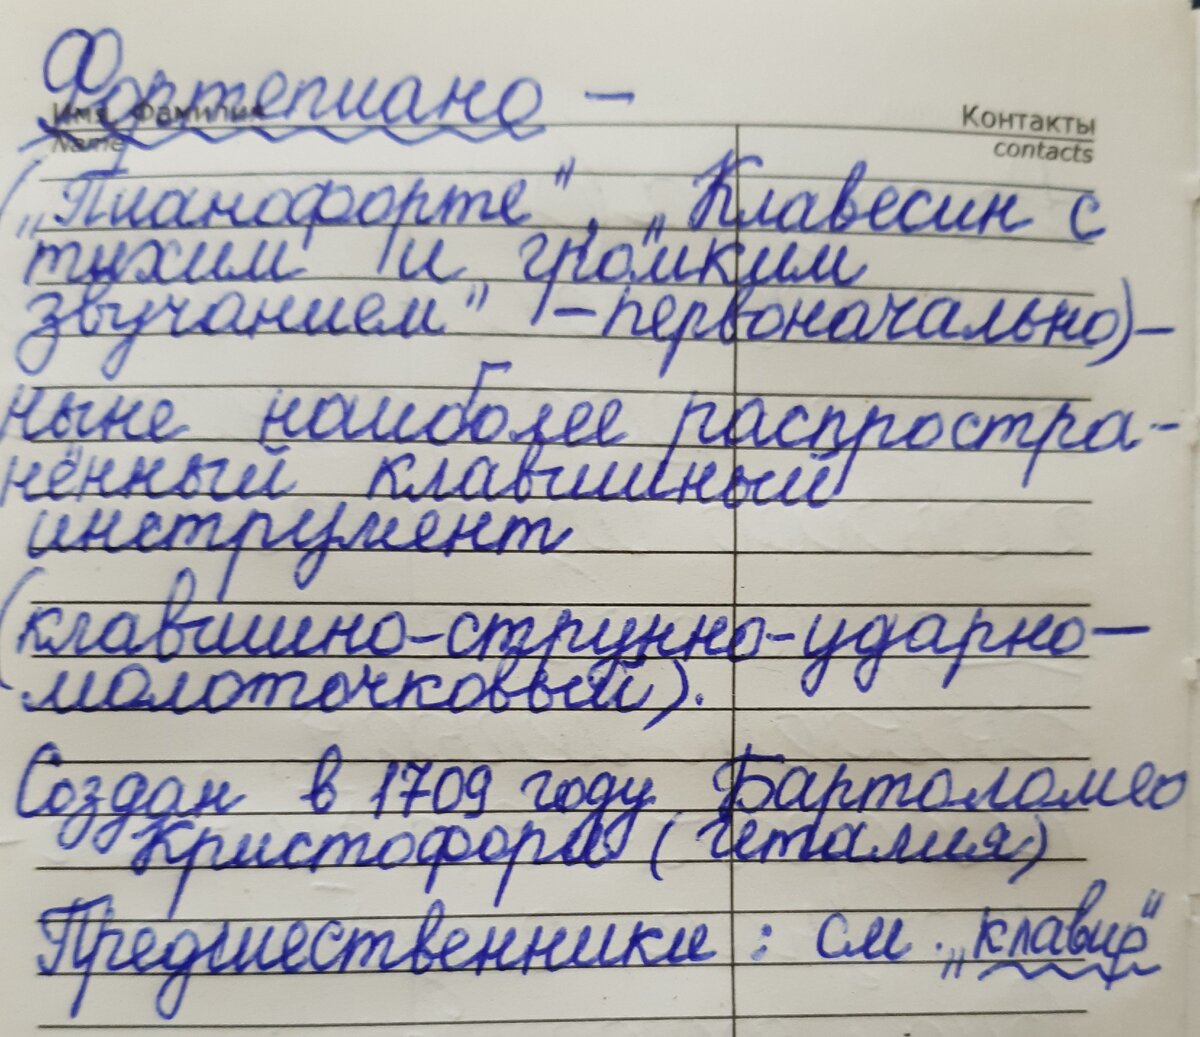 Фортепиано –
Имя, Фамилия
Name
Контакты
contacts
(„Пианофорте", „Клавесин с
тихим и громким
звучанием" – первоначально) –
ныне наиболее распростра-
нённый клавишный
инструмент
(клавишно-струнно-ударно-
молоточковый).
Создан в 1709 году Бартоломео
Кристофори (Италия)
Предшественники: см. „клавир"